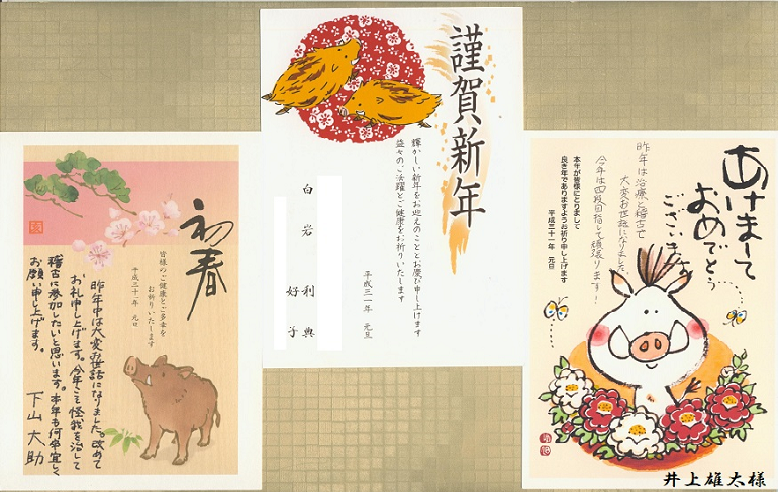 初春
皆様のご健康とご多幸を
お祈りいたします
平成三十一年 元日
昨年中は大変お世話になりました。改めて
お礼申し上げます。今年こそ怪我を治して
稽古に参加したいと思います。本年も何卒宜しく
お願い申し上げます。
下山大助
謹賀新年
輝かしい新年をお迎えのこととお慶び申し上げます
益々のご活躍とご健康をお祈りいたします
平成三一年 元旦
白岩 利典
好子
あけまして
おめでとう
ございます
昨年は治療と稽古で
大変お世話になりました。
今年は四段目指して頑張ります！
本年が皆様にとりまして
良き年でありますようお祈り申し上げます
平成三十一年 元日
井上雄太様